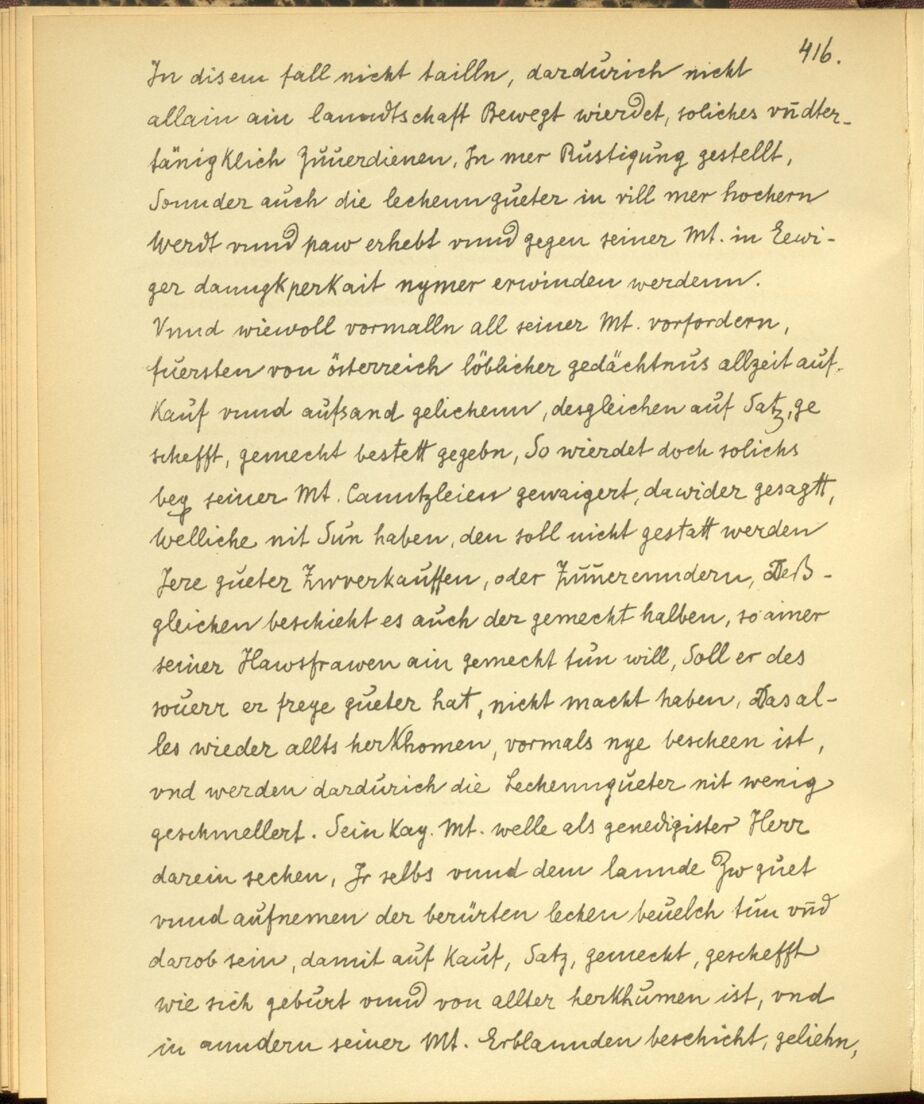 416.
In disem fall nicht tailln, dardurich nicht
allain ain lanndtschaft Bewegt wierdet, soliches vn̄dter-
tänigklich Zuuerdienen, In mer Rustigung gestellt,
Sonnder auch die lechenngueter in vill mer hochern
Werdt vnnd paw erhebt vnnd gegen seiner Mt. in Eewi-
ger danngkperkait nymer erwinden werdenn.
Vnnd wiewoll vormalln all seiner Mt. vorfordern,
fuersten von österreich löblicher gedächtnus allzeit auf-
Kauf vnnd aufsand gelichenn, desgleichen auf Satz, ge
schefft, gemecht bestett gegebn, So wierdet doch solichs
bey seiner Mt. Canntzleien gewaigert, dawider gesagtt,
Welliche nit Sun haben, den soll nicht gestatt werden
Jere gueter Zwverkauffen, oder Zuuerenndern, Deß-
gleichen beschieht es auch der gemecht halben, so ainer
seiner Hawsfrawen ain gemecht tun will, Soll er des
souerr er freye gueter hat, nicht macht haben, Das al-
les wieder allts herkhomen, vormals nye bescheen ist,
vnd werden dardurich die Lechenngueter nit wenig
geschmellert. Sein Kay. Mt. welle als genedigister Herr
darein sechen, Jr selbs vnnd dem lannde Zw guet
vnnd aufnemen der berürten lechen beuelch tun vn̄d
darob sein, damit auf Kauf, Satz, gemecht, geschefft
wie sich geburt vnnd von allter herkhumen ist, vnd
in anndern seiner Mt. Erblannden beschicht, geliehn,